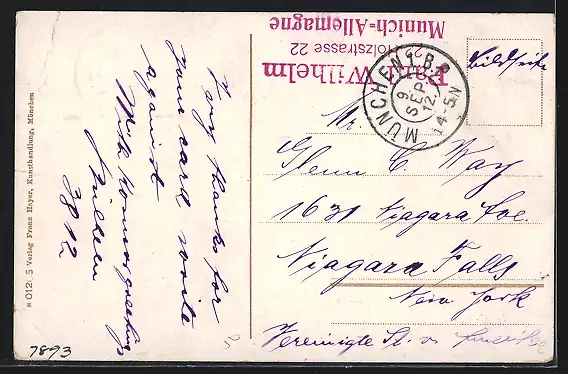 Paul Wilhelm
Holzstrasse 22
Munich=Allemagne
MÜNCHEN I.B.P.
9.
SEP
12.
4-5N
Bildseite
Mr.
Glenn C. Way
1631 Niagara Ave.
Niagara Falls
New York
Vereinigte St. v. Amerika
Very thanks for
your card write
against
With
3812
Verlag Franz Hayer, Kunsthandlung, München
7893